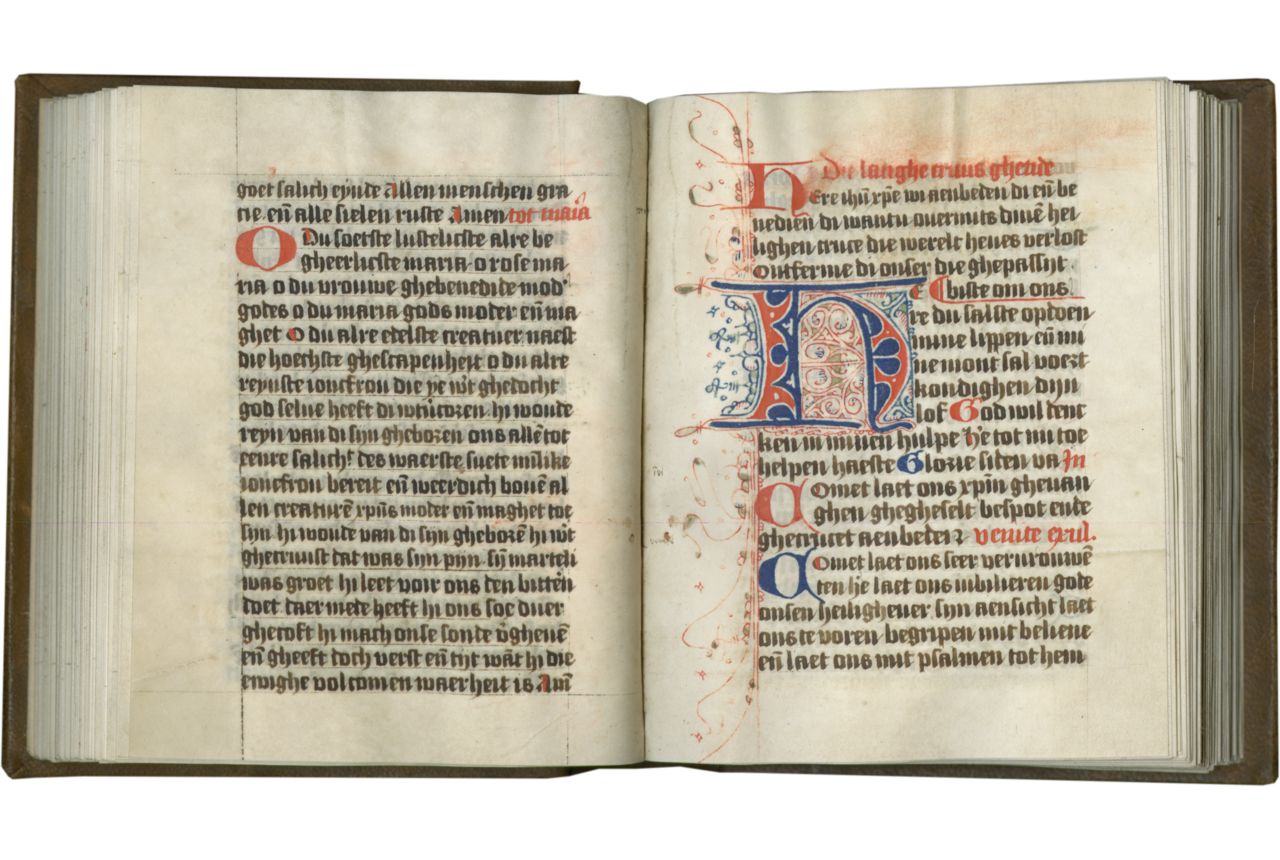 goet salich eynde Allen menschen gra
cie en̄ alle sielen ruste Amen tot maria
O Du soetste lustelicste alre be
gheerlicste maria o rose ma
ria o du vrouwe ghebenedide mod'
godes o du maria gods moder en̄ ma
ghet O du alre edelste creatuer naest
die hoechste ghescapenheit o du alre
reynste ioncfrou die ye wt ghedocht
god selue heeft di wtuercoren hi woude
reyn van di sijn gheboren ons allē tot
eenre salich' des waerste suete milike
ioncfrou bereit en̄ weerdich bouē al
len creaturē xpūs moder en̄ maghet toe
sijn hi woude van di sijn gheborē hi wt
ghecruust dat was sijn pijn sijn marteli
was groet hi leet voir ons den bittēn
doet daer mede heeft hi ons soe duer
ghecoft hi mach onse sonde v'gheuē
en̄ gheeft doch verst en̄ tijt wāt hi die
ewighe volcomen waerheit is Amē
Die langhe cruus ghetide
Here ihū xpē wi aenbeden di en̄ be
nedien di want u ouermits dinē hei
lighen cruce die werelt heues verlost
Ontferme di onser die ghepassijt
biste om ons
Here du salste opdoen
mine lippen en̄ mi
ne mont sal voert
kondighen dijn
lof God wil denc
ken in minen hulpe he tot mi toe
helpen haeste Glorie si den va In
Comet laet ons xpm̄ gheuan
ghen ghegheselt bespot ende
ghecruct aenbeden venite exul.
Comet laet ons seer vervrouwē
den he laet ons iubilieren gode
onsen heiligheuer sijn aensicht laet
ons te voren begripen mit beliene
en̄ laet ons mit psalmen tot hem